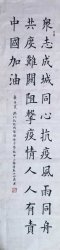 众志成城同心抗疫風雨同舟
共度難關阻擊疫情人人有責
中國加油